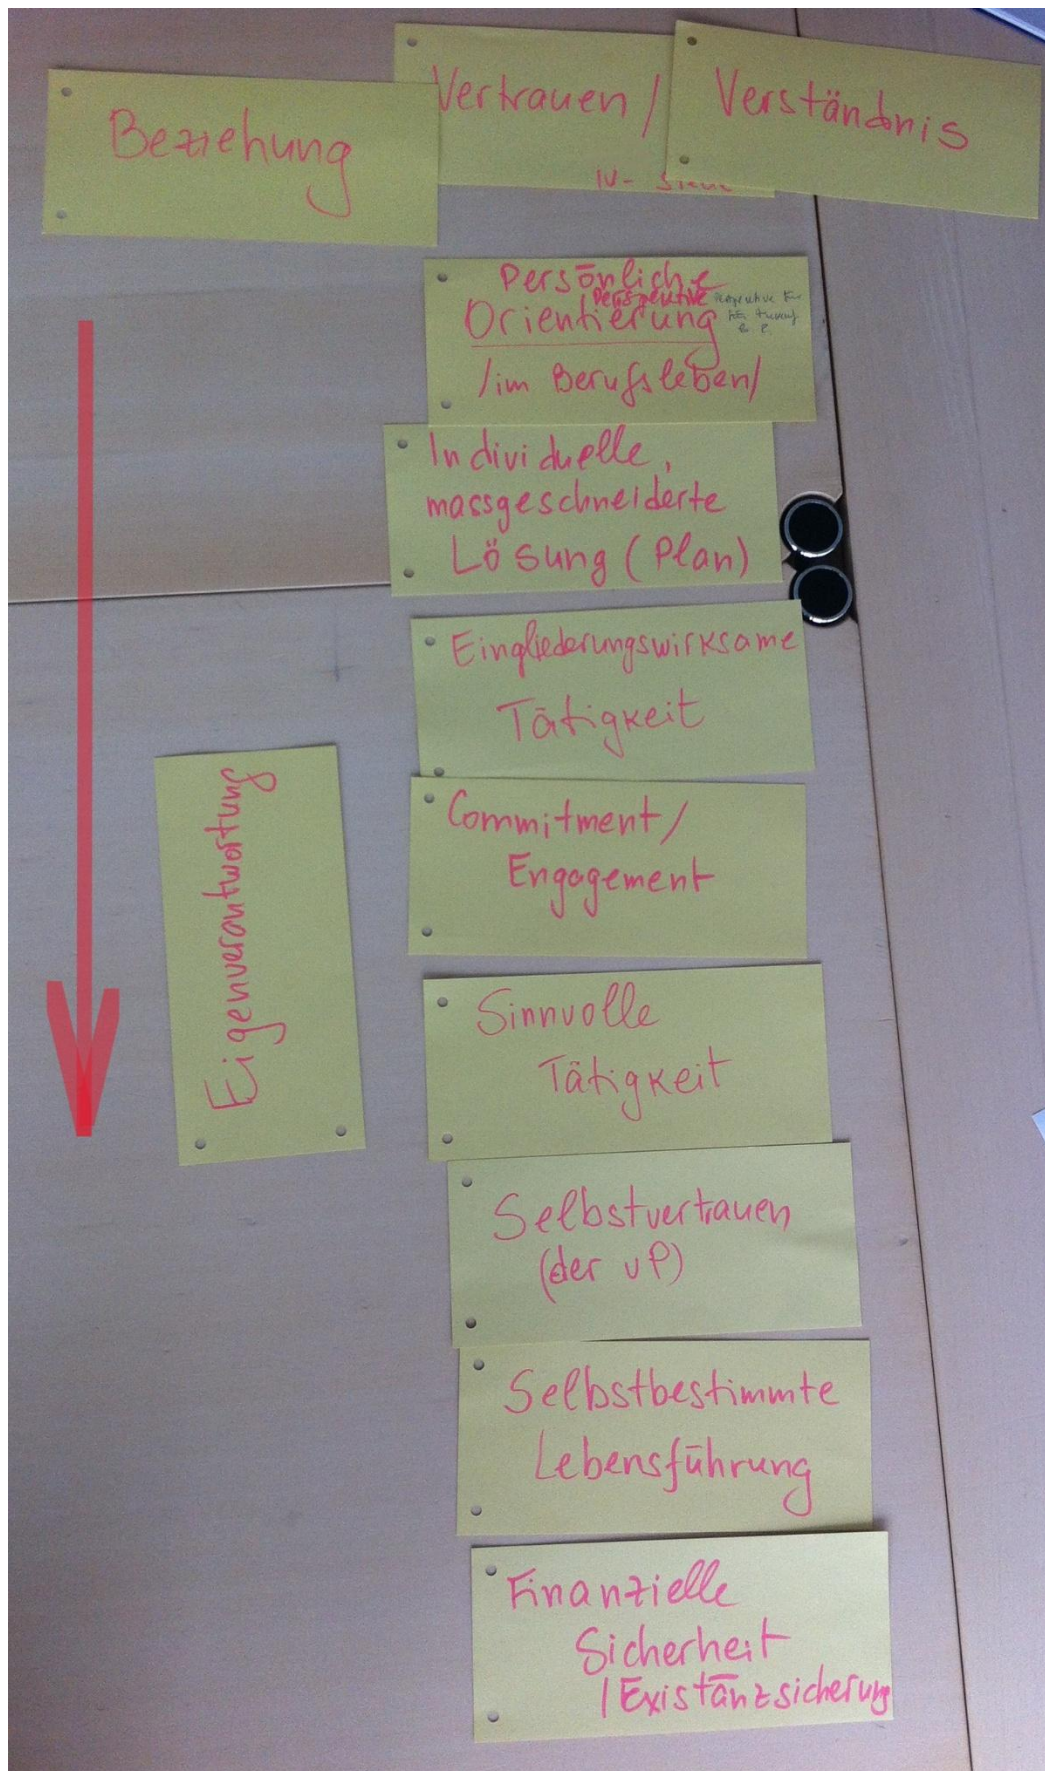 Beziehung
Vertrauen /
Verständnis
IV-
Persönliche
/Perspektive
Orientierung
/im Berufsleben/
Individuelle,
massgeschneiderte
Lösung (Plan)
Eingliederungswirksame
Tätigkeit
Commitment/
Engagement
Eigenverantwortung
Sinnvolle
Tätigkeit
Selbstvertrauen
(der vP)
Selbstbestimmte
Lebensführung
Finanzielle
Sicherheit
/Existänzsicherung